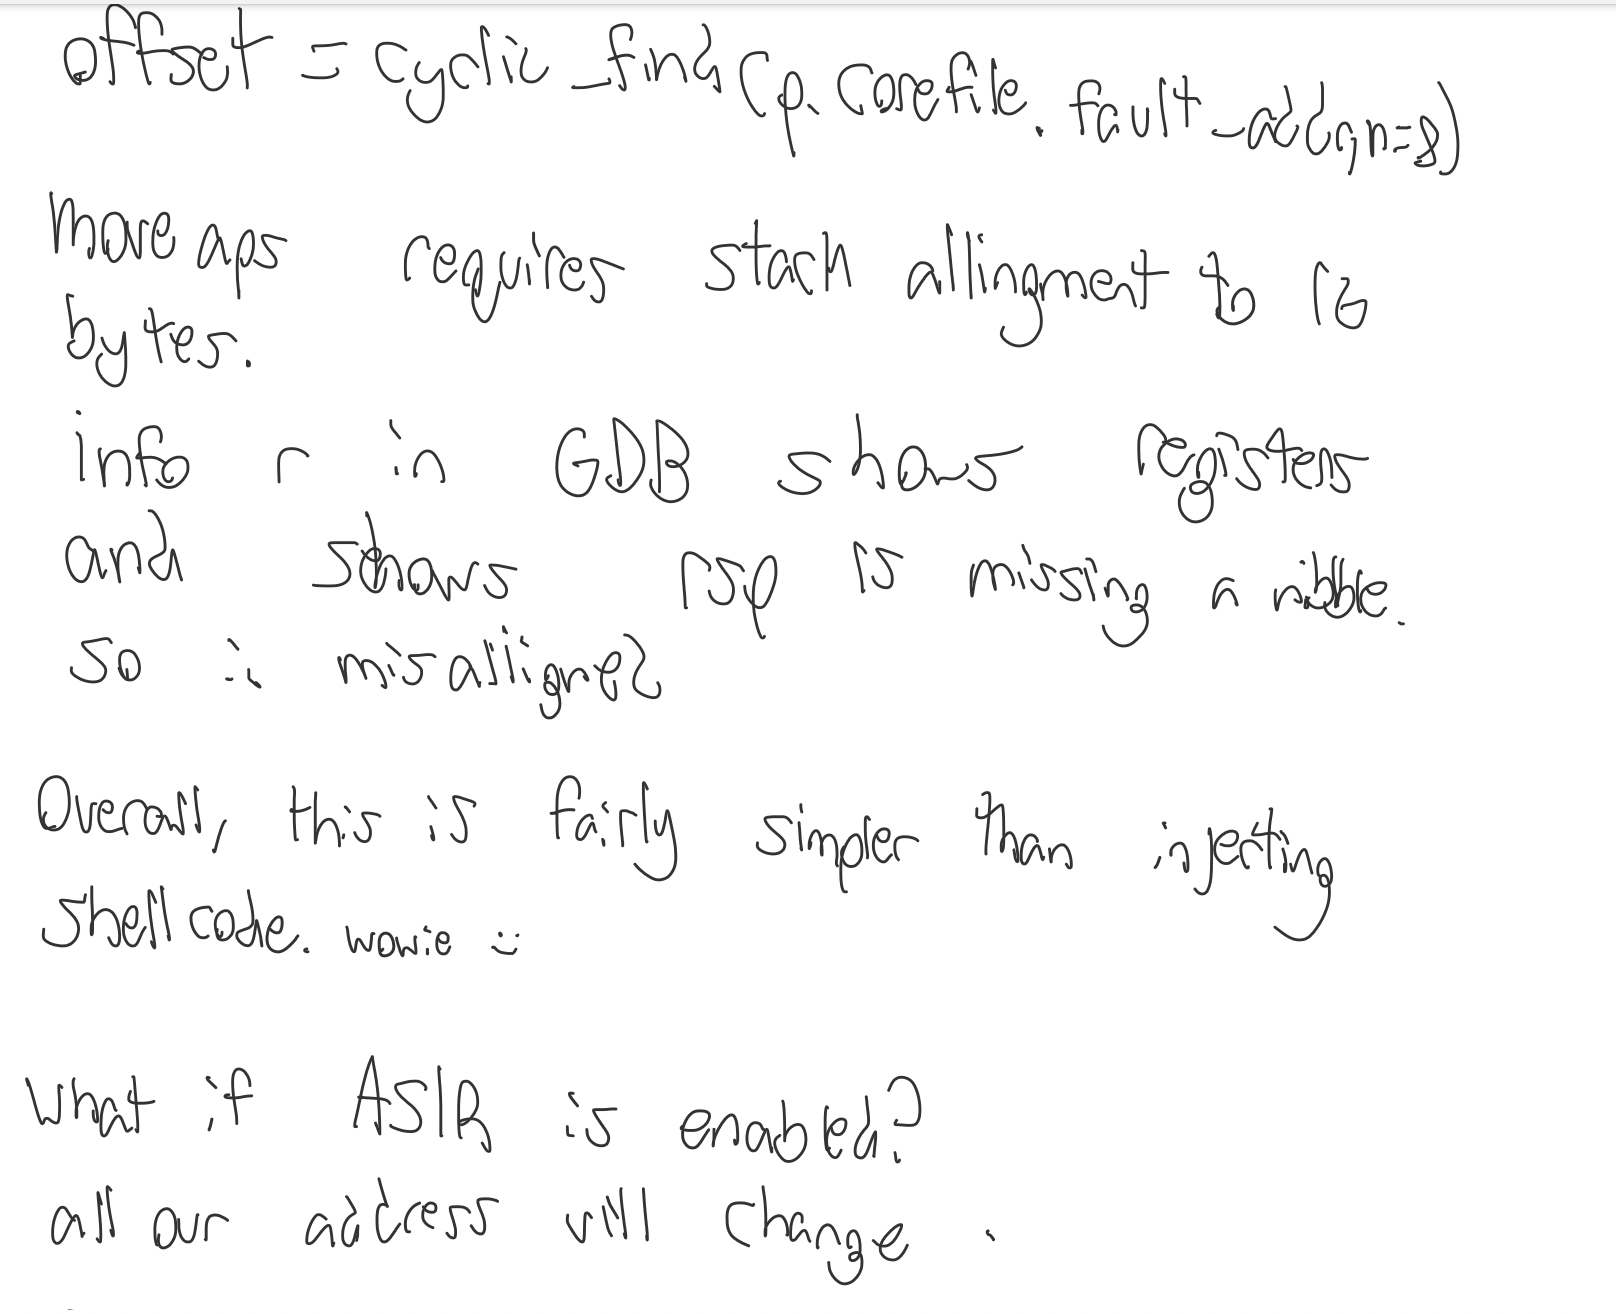 offset = cyclic_find(p.corefile.fault_addr,n=8)
movaps requires stack allingment to 16
bytes.
info r in GDB shows registers
and shows rsp is missing a nibble.
so ∴ misalligned
Overall, this is fairly simpler than injecting
shell code. wowie :)
what if ASLR is enabled?
all our address will change .